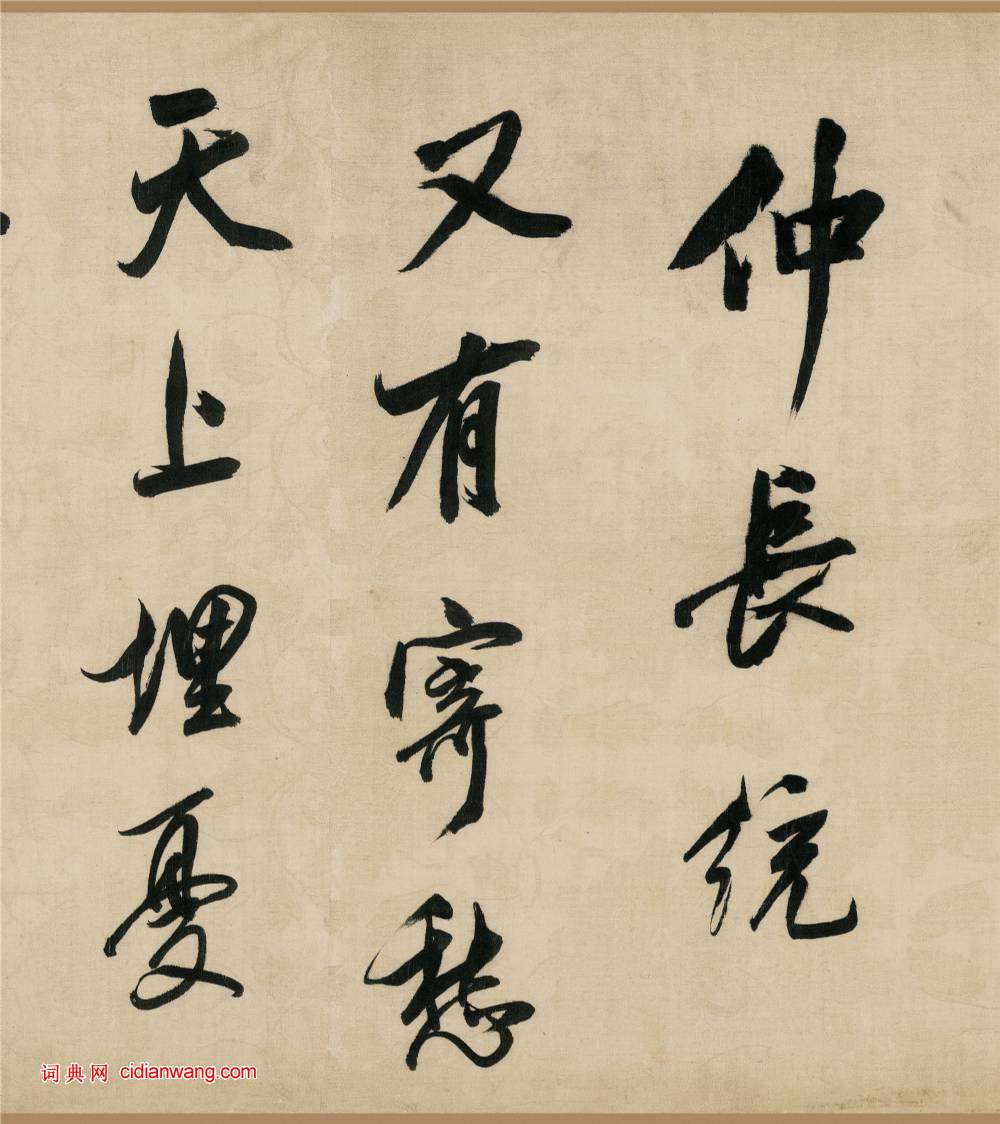 仲長統
又有寄愁
天上埋憂
词典网 cidianwang.com